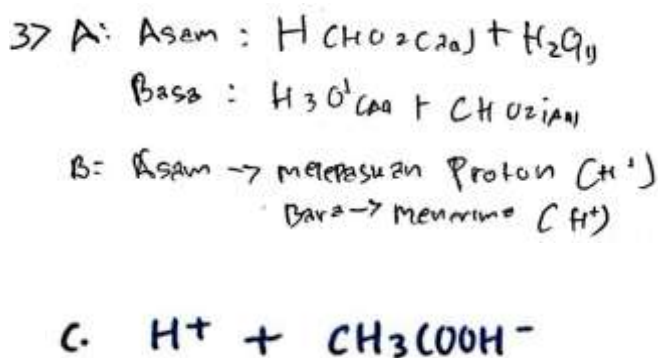 3> A: Asam : HCHO2(aq) + H2O(l)
Basa : H3O+(aq) + CHO2(aq)
B= Asam -> melepasuan Proton (H+)
Basa -> menerima (H+)
C. H+ + CH3COOH-